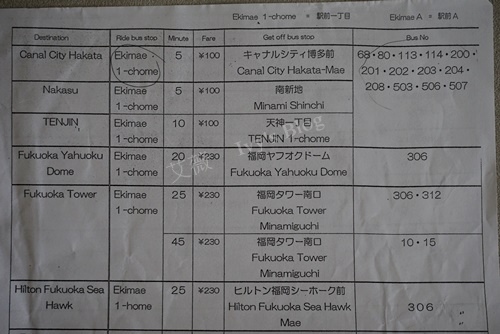 Ekimae 1-chome = 駅前一丁目 Ekimae A = 駅前A
Destination Ride bus stop Minute Fare Get off bus stop Bus No
Canal City Hakata Ekimae 5 ¥100 キャナルシティ博多前 68・80・113・114・200・
1-chome Canal City Hakata-Mae 201・202・203・204・
Nakasu Ekimae 5 ¥100 南新地 208・503・506・507
1-chome Minami Shinchi
TENJIN Ekimae 10 ¥100 天神一丁目
1-chome TENJIN 1-chome
Fukuoka Yahuoku Ekimae 20 ¥230 福岡ヤフオクドーム 306
Dome 1-chome Fukuoka Yahuoku Dome
Fukuoka Tower Ekimae 25 ¥230 福岡タワー南口 306・312
1-chome Fukuoka Tower
Minamiguchi
45 ¥230 福岡タワー南口 10・15
Fukuoka Tower
Minamiguchi
Hilton Fukuoka Sea Ekimae 25 ¥230 ヒルトン福岡シーホーク前
Hawk 1-home Hilton Fukuoka Sea Hawk 306
Mae